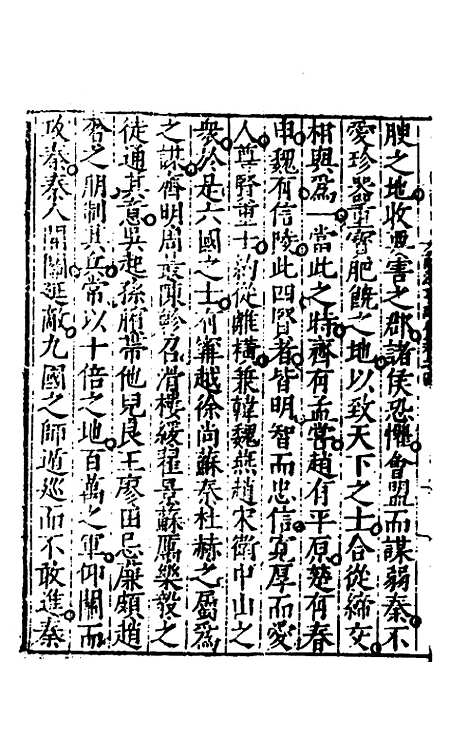 腴之地收要害之郡諸侯恐懼會盟而謀弱秦不
愛珍器重寳肥饒之地以致天下之士合從締交
相與爲一當此之時齊有孟嘗趙有平原楚有春
申魏有信陵此四賢者皆明智而忠信寬厚而愛
人尊賢重士約從離橫兼韓魏燕趙宋衛中山之
衆於是六國之士有甯越徐尚蘇秦杜赫之屬爲
之謀齊明周最陳軫召滑樓緩翟景蘇厲樂毅之
徒通其意吳起孫臏帶他兒良王廖田忌廉頗趙
奢之朋制其兵常以十倍之地百萬之軍仰關而
攻秦秦人開關延敵九國之師遁巡而不敢進秦